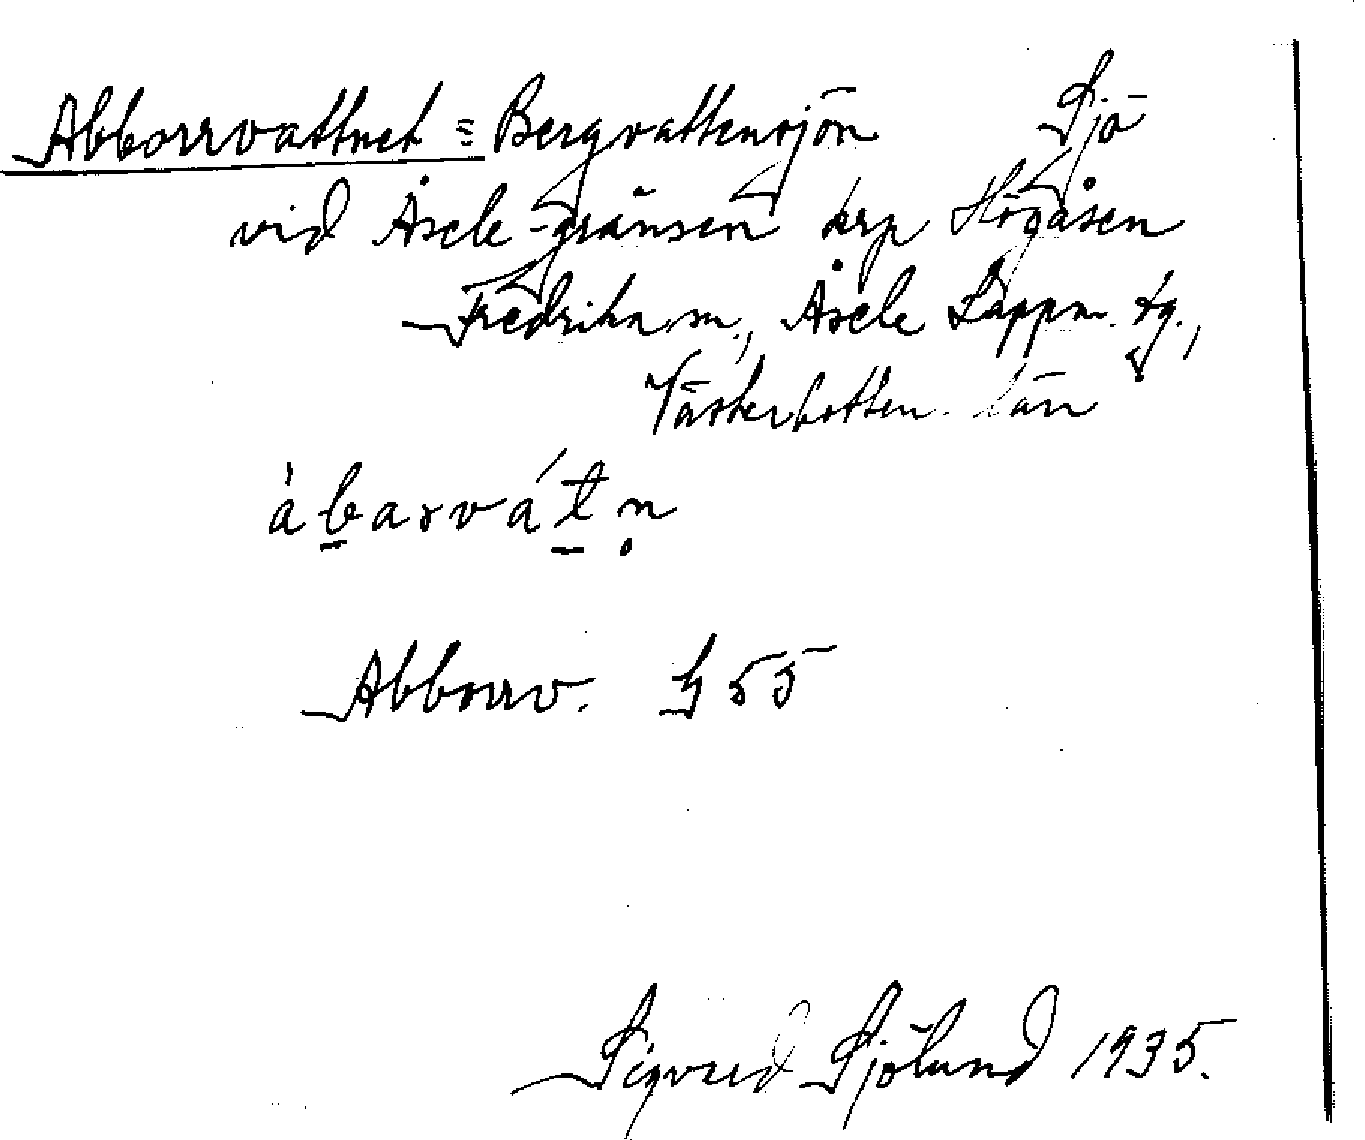 Abborrvattnet = Bergvattensjön Sjö
vid Åsele-gränsen krp Högåsen
Fredrika sn., Åsele Lappm. tg.,
Västerbotten. län
àbarvátn̥
Abborrv. G 55
Sigvard Sjölund 1935.